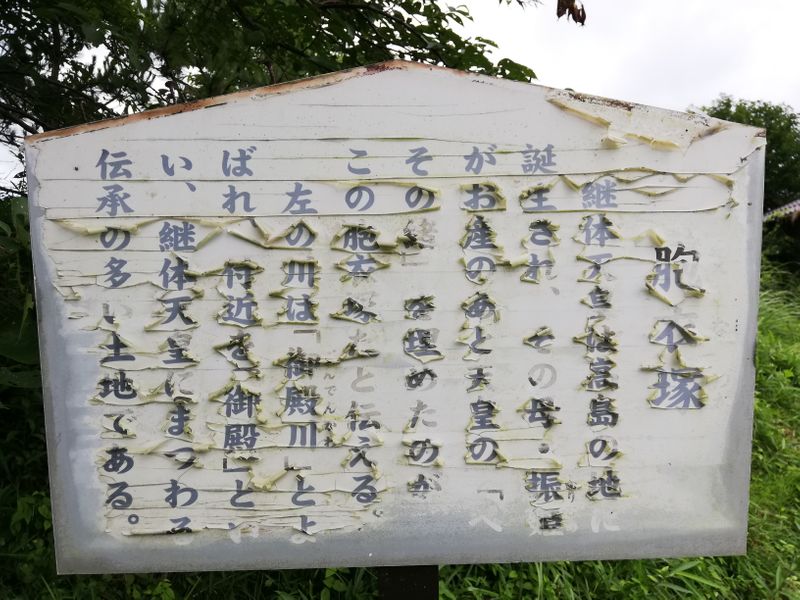 胞衣塚
継体天皇は高島の地に
誕生され、その母・振姫
がお産のあと天皇の「へ
その緒」を埋めたのが
この胞衣塚だと伝える。
左の川は「御殿川」とよ
ばれ、付近を「御殿」とい
い、継体天皇にまつわる
伝承の多い土地である。